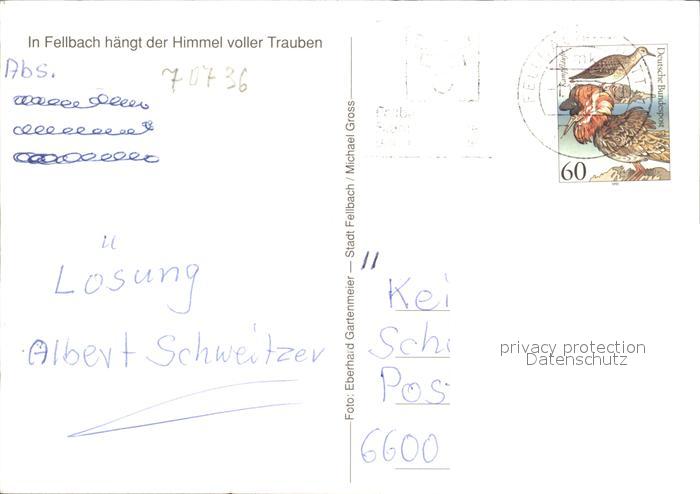 In Fellbach hängt der Himmel voller Trauben
Abs.
70736
Lösung
Albert Schweitzer
Foto: Eberhard Gartenmeier — Stadt Fellbach / Michael Gross
Deutsche Bundespost
60
Kei
Schi
Pos
6600
privacy protection
Datenschutz